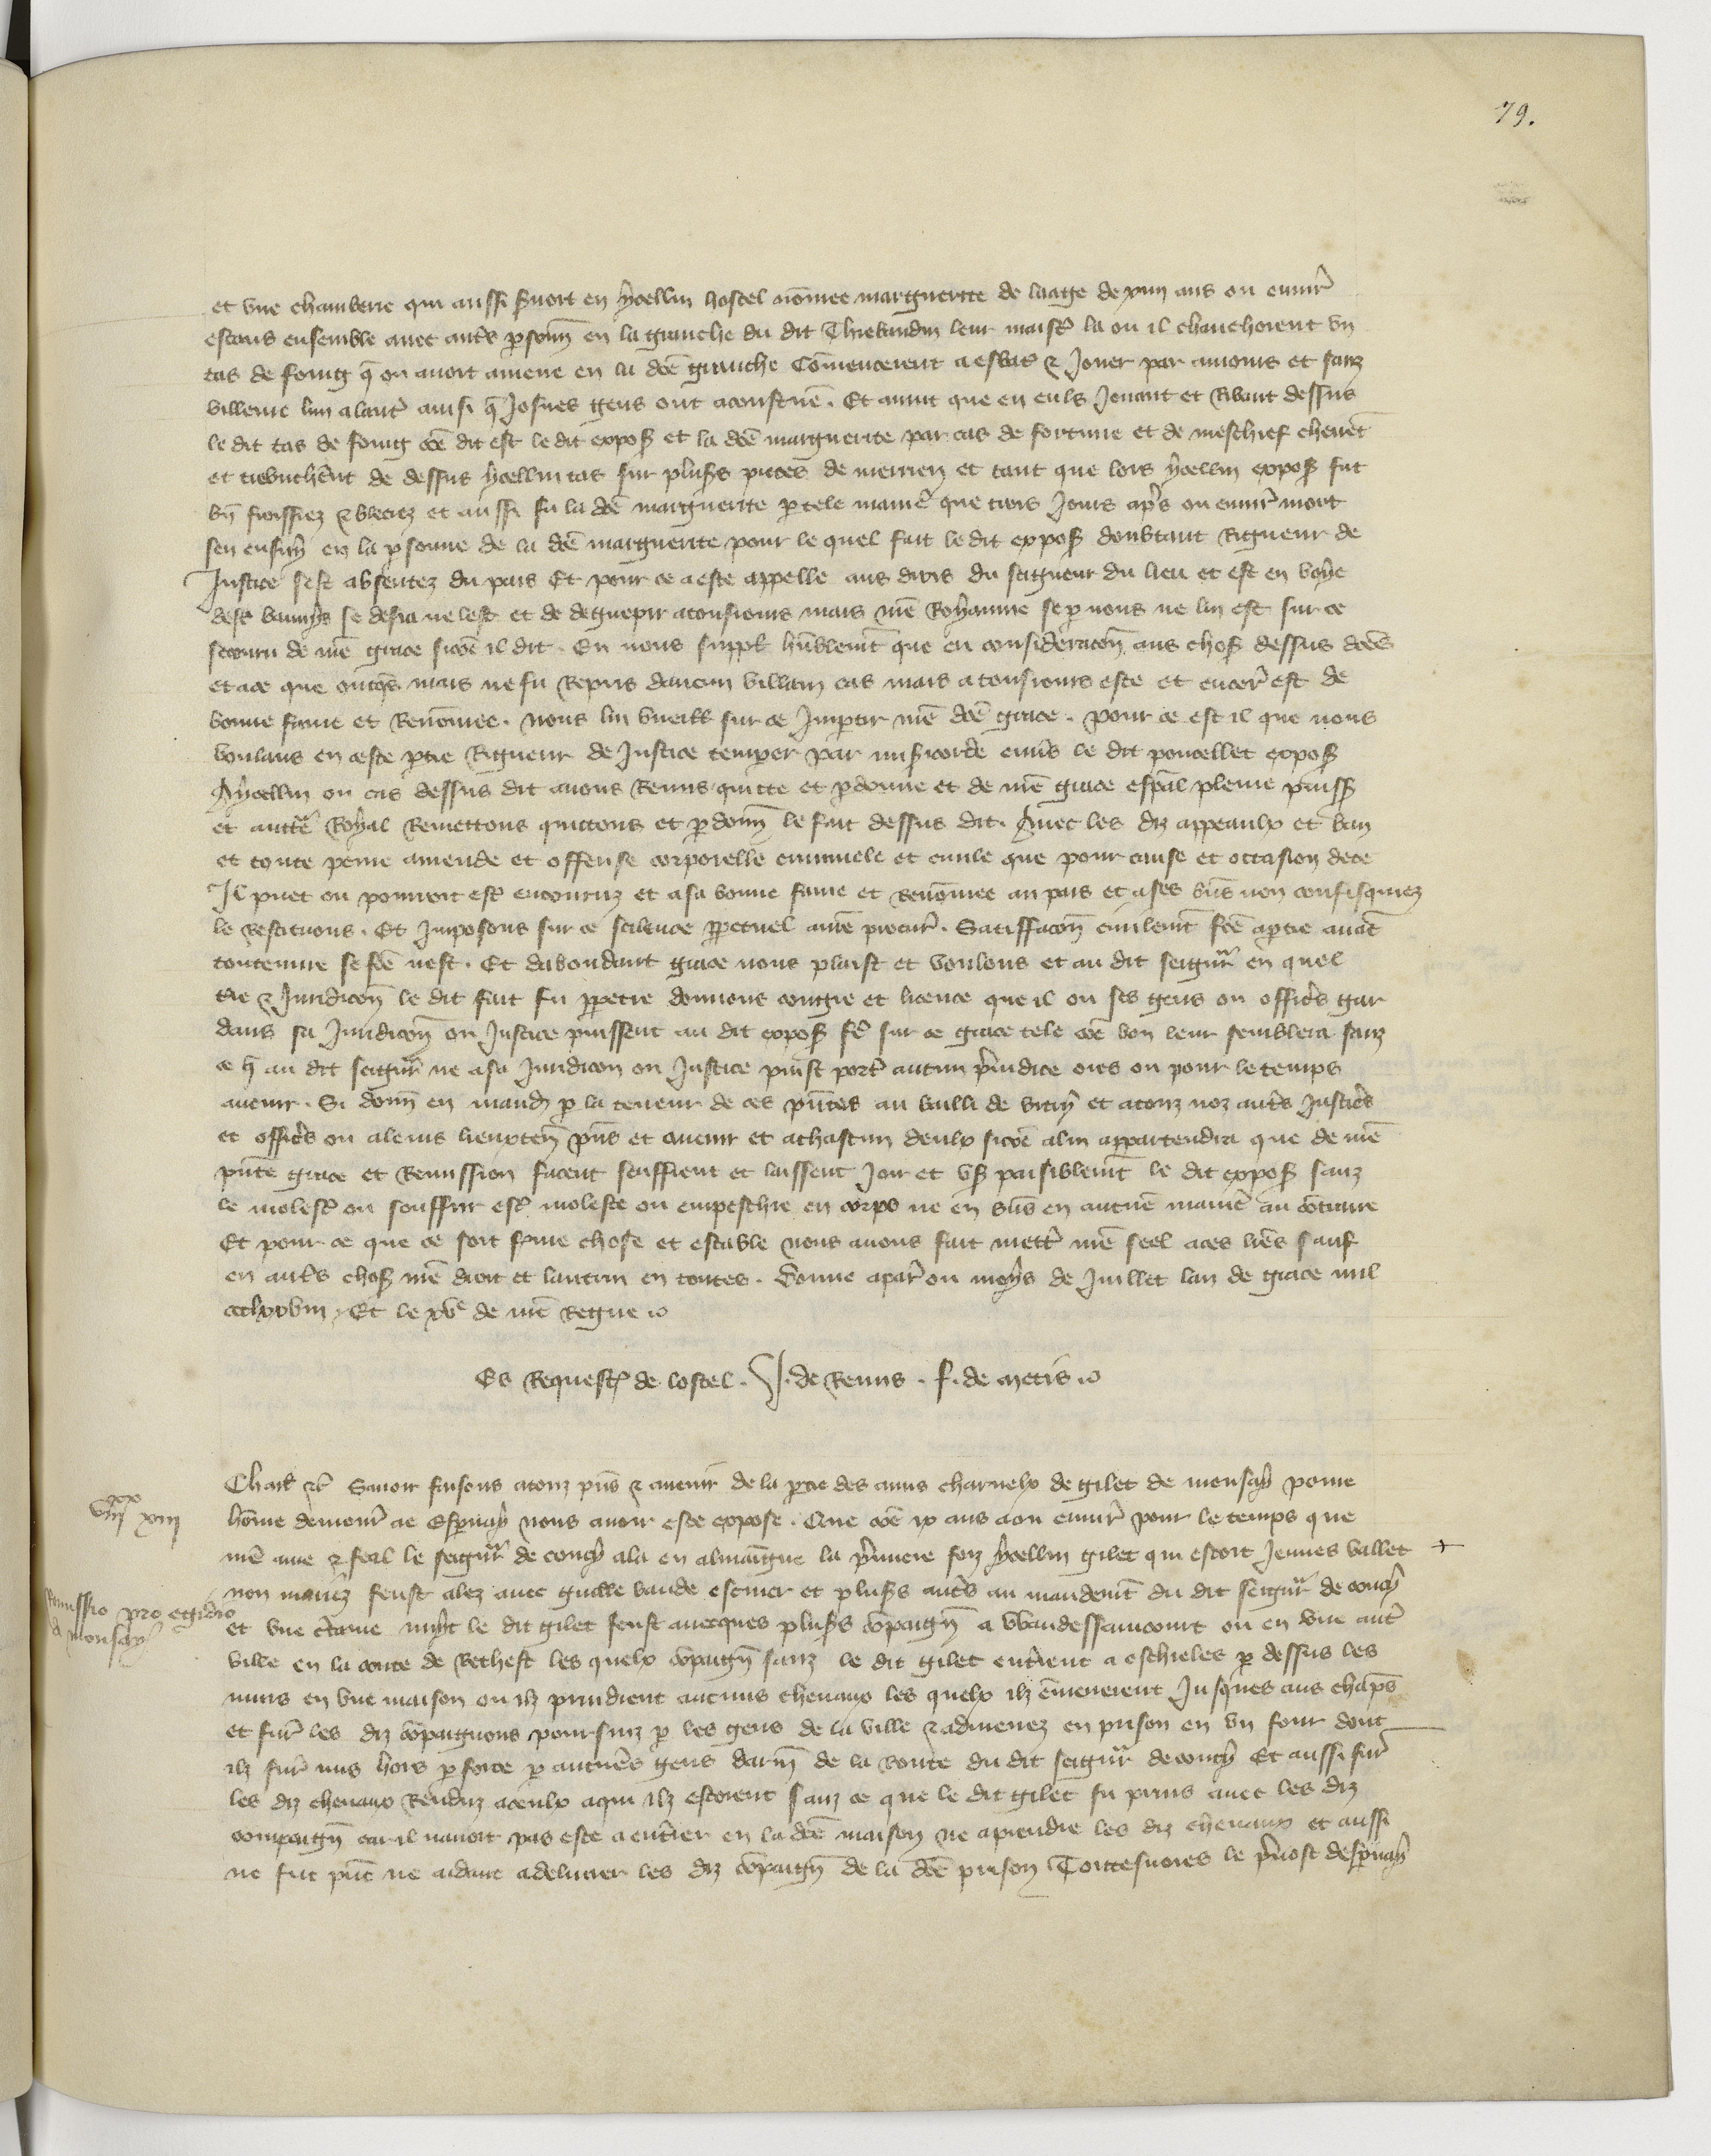 79.
et une chamberiere qui aussi servoit en ycellui hostel nōmee marguerite de laage de xiiii ans ou envir̄
estans ensemble avec aut̄s p̄sonn̄ en la granche du dit Thiebaudin leur maist̄ la ou il chauchoient un
tas de foing q̄ on avoit amene en la dc̄e granche Cōmencerent a esbat̄ & Jouer par amours et sanz
villenie lun a laut̄ ainsi q̄ Josnes gens ont acoustume. Et avint que en euls Jouant et Riant dessus
le dit tas de foing cōe dit est le dit expoſ et la dc̄e marguerite par cas de fortune et de meschief cheirēt
et trebuchēnt de dessus ycellui tas sur pluſs pieces de merrien et tant que lors ycellui expoſ fut
bn̄ froissiez & bleciez et aussi fu la dc̄e marguerite p tele manie que trois Jours ap̄s ou envir̄ mort
sen ensuy en la p̄sonne de la dc̄e marguerite pour le quel fait le dit expoſ doubtant Rigueur de
Justice sest absentez du pais Et pour ce a este appelle aus drois du seigneur du lieu et est en voye
dest̄ bannys se desia ne lest et de deguepir a tousiours mais nr̄e Royaume se p nous ne lui est sur ce
secouru de nr̄e grace sicōe il dit. En nous suppl̄ hūblemt̄ que en consideracōn aus choſ dessus dc̄es
et a ce que onq̄s mais ne fu Repris daucun villain cas mais a tousiours este et encor̄ est de
bonne fame et Renōmee. Nous lui vueill̄ sur ce Imp̄tir nr̄e dc̄e grace. Pour ce est il que nous
voulans en ceste p̄tie Rigueur de Justice temper par miſicorde envs̄ le dit poucellet expoſ
A ycellui ou cas dessus dit avons Remis quitte et p̄donne et de nr̄e grace esp̄al pleine puisſ
et auctē Royal Remettons quittons et p̄donn̄ le fait dessus dit. Avec les diz appeaulx et ban
et toute peine amende et offense corporelle criminele et civile que pour cause et occasion de ce
Il puet ou pourroit est̄ encouruz et a sa bonne fame et Renōmee au pais et a ses bn̄s non confisquiez
le Restituons. Et Imposons sur ce scilence p̄petuel a nr̄e procur̄. Satiffacōn civilemt̄ fc̄e a p̄tie avāt
toutenvre se fc̄e nest. Et dabondant grace nous plaist et voulons et au dit seigūr en quel
t̄re & Juridicōn le dit fait fu p̄petre donnons congie et licence que il ou ses gens ou offic̄s gar
dans sa Juridicōn ou Justice puissent au dit expoſ fe sur ce grace tele cōe bon leur semblera sanz
ce q̄ au dit seigūr ne a sa Juridicōn ou Justice puist port̄ aucun p̄iudice ores ou pour le temps
avenir. Si donn̄ en mand̄ p la teneur de ces p̄ntes au bailli de vitry et a touz noz aut̄s Justic̄s
et offic̄s ou a leurs lieuxten̄ p̄ns et avenir et a chascun deulx sicōe a lui appartendra que de nr̄e
p̄nte grace et Remission facent seuffrent et laissent Joir et uſ paisiblemt̄ le dit expoſ sanz
le molest̄ ou souffrir est̄ moleste ou empeschie en corps ne en bn̄s en aucūe manie au cōtraire
Et pour ce que ce soit ferme chose et estable nous avons fait mett̄ nr̄e seel a ces lr̄es sauf
en aut̄s choſ nr̄e droit et lautrui en toutes. Donne a par̄ ou moys de Juillet lan de grace mil
ccclxxviii. Et le xve de nr̄e Regne
Es Request̄ de lostel. J. de Reims. f. de metis
Charl̄ &c̄ Savoir faisons a touz p̄ns & avenir de la p̄tie des amis charnelx de gilet de monsay povre
hōme demour̄ ae Esp̄nay nous avoir este expose. Que cōe ix ans a ou envir̄ pour le temps que
nr̄e ame & feal le seigūr de coucy ala en almaigne la p̄miere foiz ycellui gilet qui estoit Jeunes vallet
non mariez feust alez avec guille baude escuier et pluſs aut̄s au mandemt̄ du dit seigūr de coucy
et une c̄taine nuyt le dit gilet feust avecques pluſs cōpaign̄ a Waudessaincourt ou en une aut̄
ville en la conte de Rethest les quelx cōpaign̄ sanz le dit gilet ent̄rent a eschieles p dessus les
murs en une maison ou ilz prindrent aucuns chevaux les quelx ilz ēmenerent Jusques aus chāps
et fur̄ les diz cōpaignons poursuiz p les gens de la ville & admenez en prison en un four dont
ilz fur̄ mis hors p force p aucunes gens darm̄ de la Route du dit seigūr de coucy Et aussi fur̄
les diz chevaux Renduz a ceulx a qui ilz estoient sanz ce que le dit gilet fu prins avec les diz
compaign̄ car il navoit pas este a ent̄rer en la dc̄e maison ne a prendre les diz chevaux et aussi
ne fut p̄nt ne aidant a delivrer les diz cōpaign̄ de la dc̄e prison Toutesvoies le p̄vost desp̄nay
viii xx xiii
Remissio pro egidio
de monsay